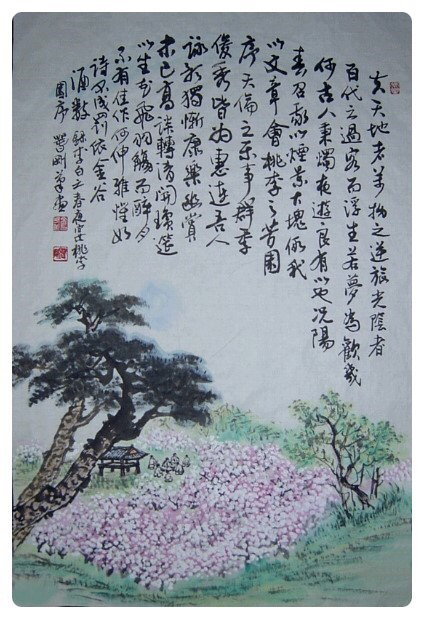 夫天地者萬物之逆旅光陰者
百代之過客而浮生若夢為歡幾
何古人秉燭夜遊良有以也况陽
春召我以煙景大塊假我
以文章會桃李之芳園
序天倫之乐事群季
俊秀皆为惠連吾人
詠歌獨慚康樂幽賞
未已高談轉清開瓊筵
以坐花飛羽觴而醉月
不有佳作何伸雅懷如
詩不成罰依金谷
酒數 録李白之春夜宴桃李
園序 剛